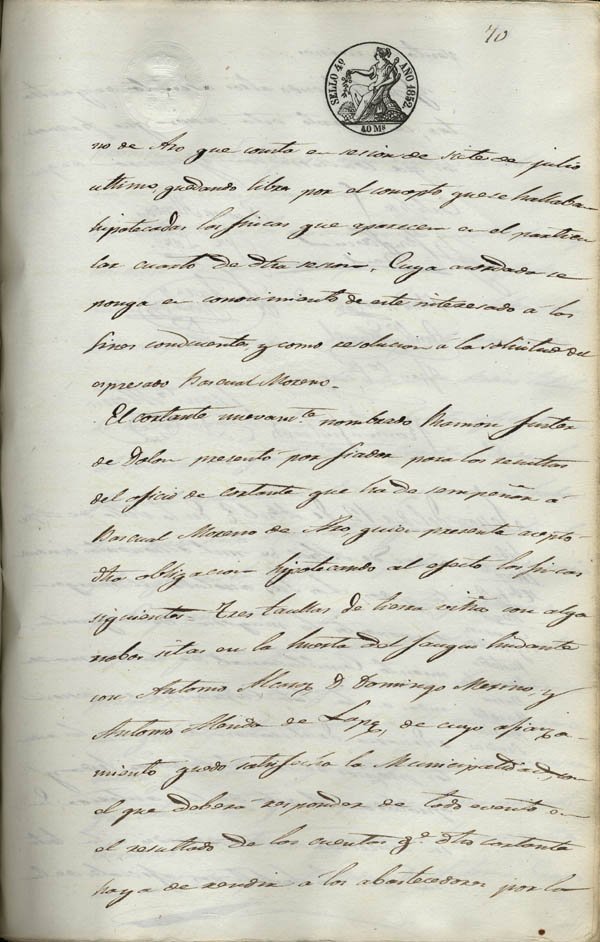 70
SELLO 4º AÑO 1852.
40 Ms
no de Aro que consta en sesion de siete de julio
ultimo, quedando libre por el concepto que se hallaban
hipotecadas las fincas que aparecen en el particu
lar cuarto de dha sesion. Cuya acordada se
ponga en conocimiento de este interesado á los
fines conducentes y como resolucion a la solicitud del
espresado Pascual Moreno.
El cortante nuevamte. nombrado Ramon Fuster
de presentó por fiador para las resultas
del oficio de cortante que ha de sempeñar á
Pascual Moreno de Aro, quien presente acepto
dha obligacion hipotecando al efecto las fincas
siguientes. Tres taullas de tierra viña con alga
rrobos sitas en la huerta del lindante
con Antonio D. Domingo Merino, y
Antonio de de cuyo afianza
miento quedó satisfecha la Municipalidad, con
el que deberá responder de todo evento en
el resultado de las cuentas qe. dho cortante
haya de rendir a los abastecedores por la